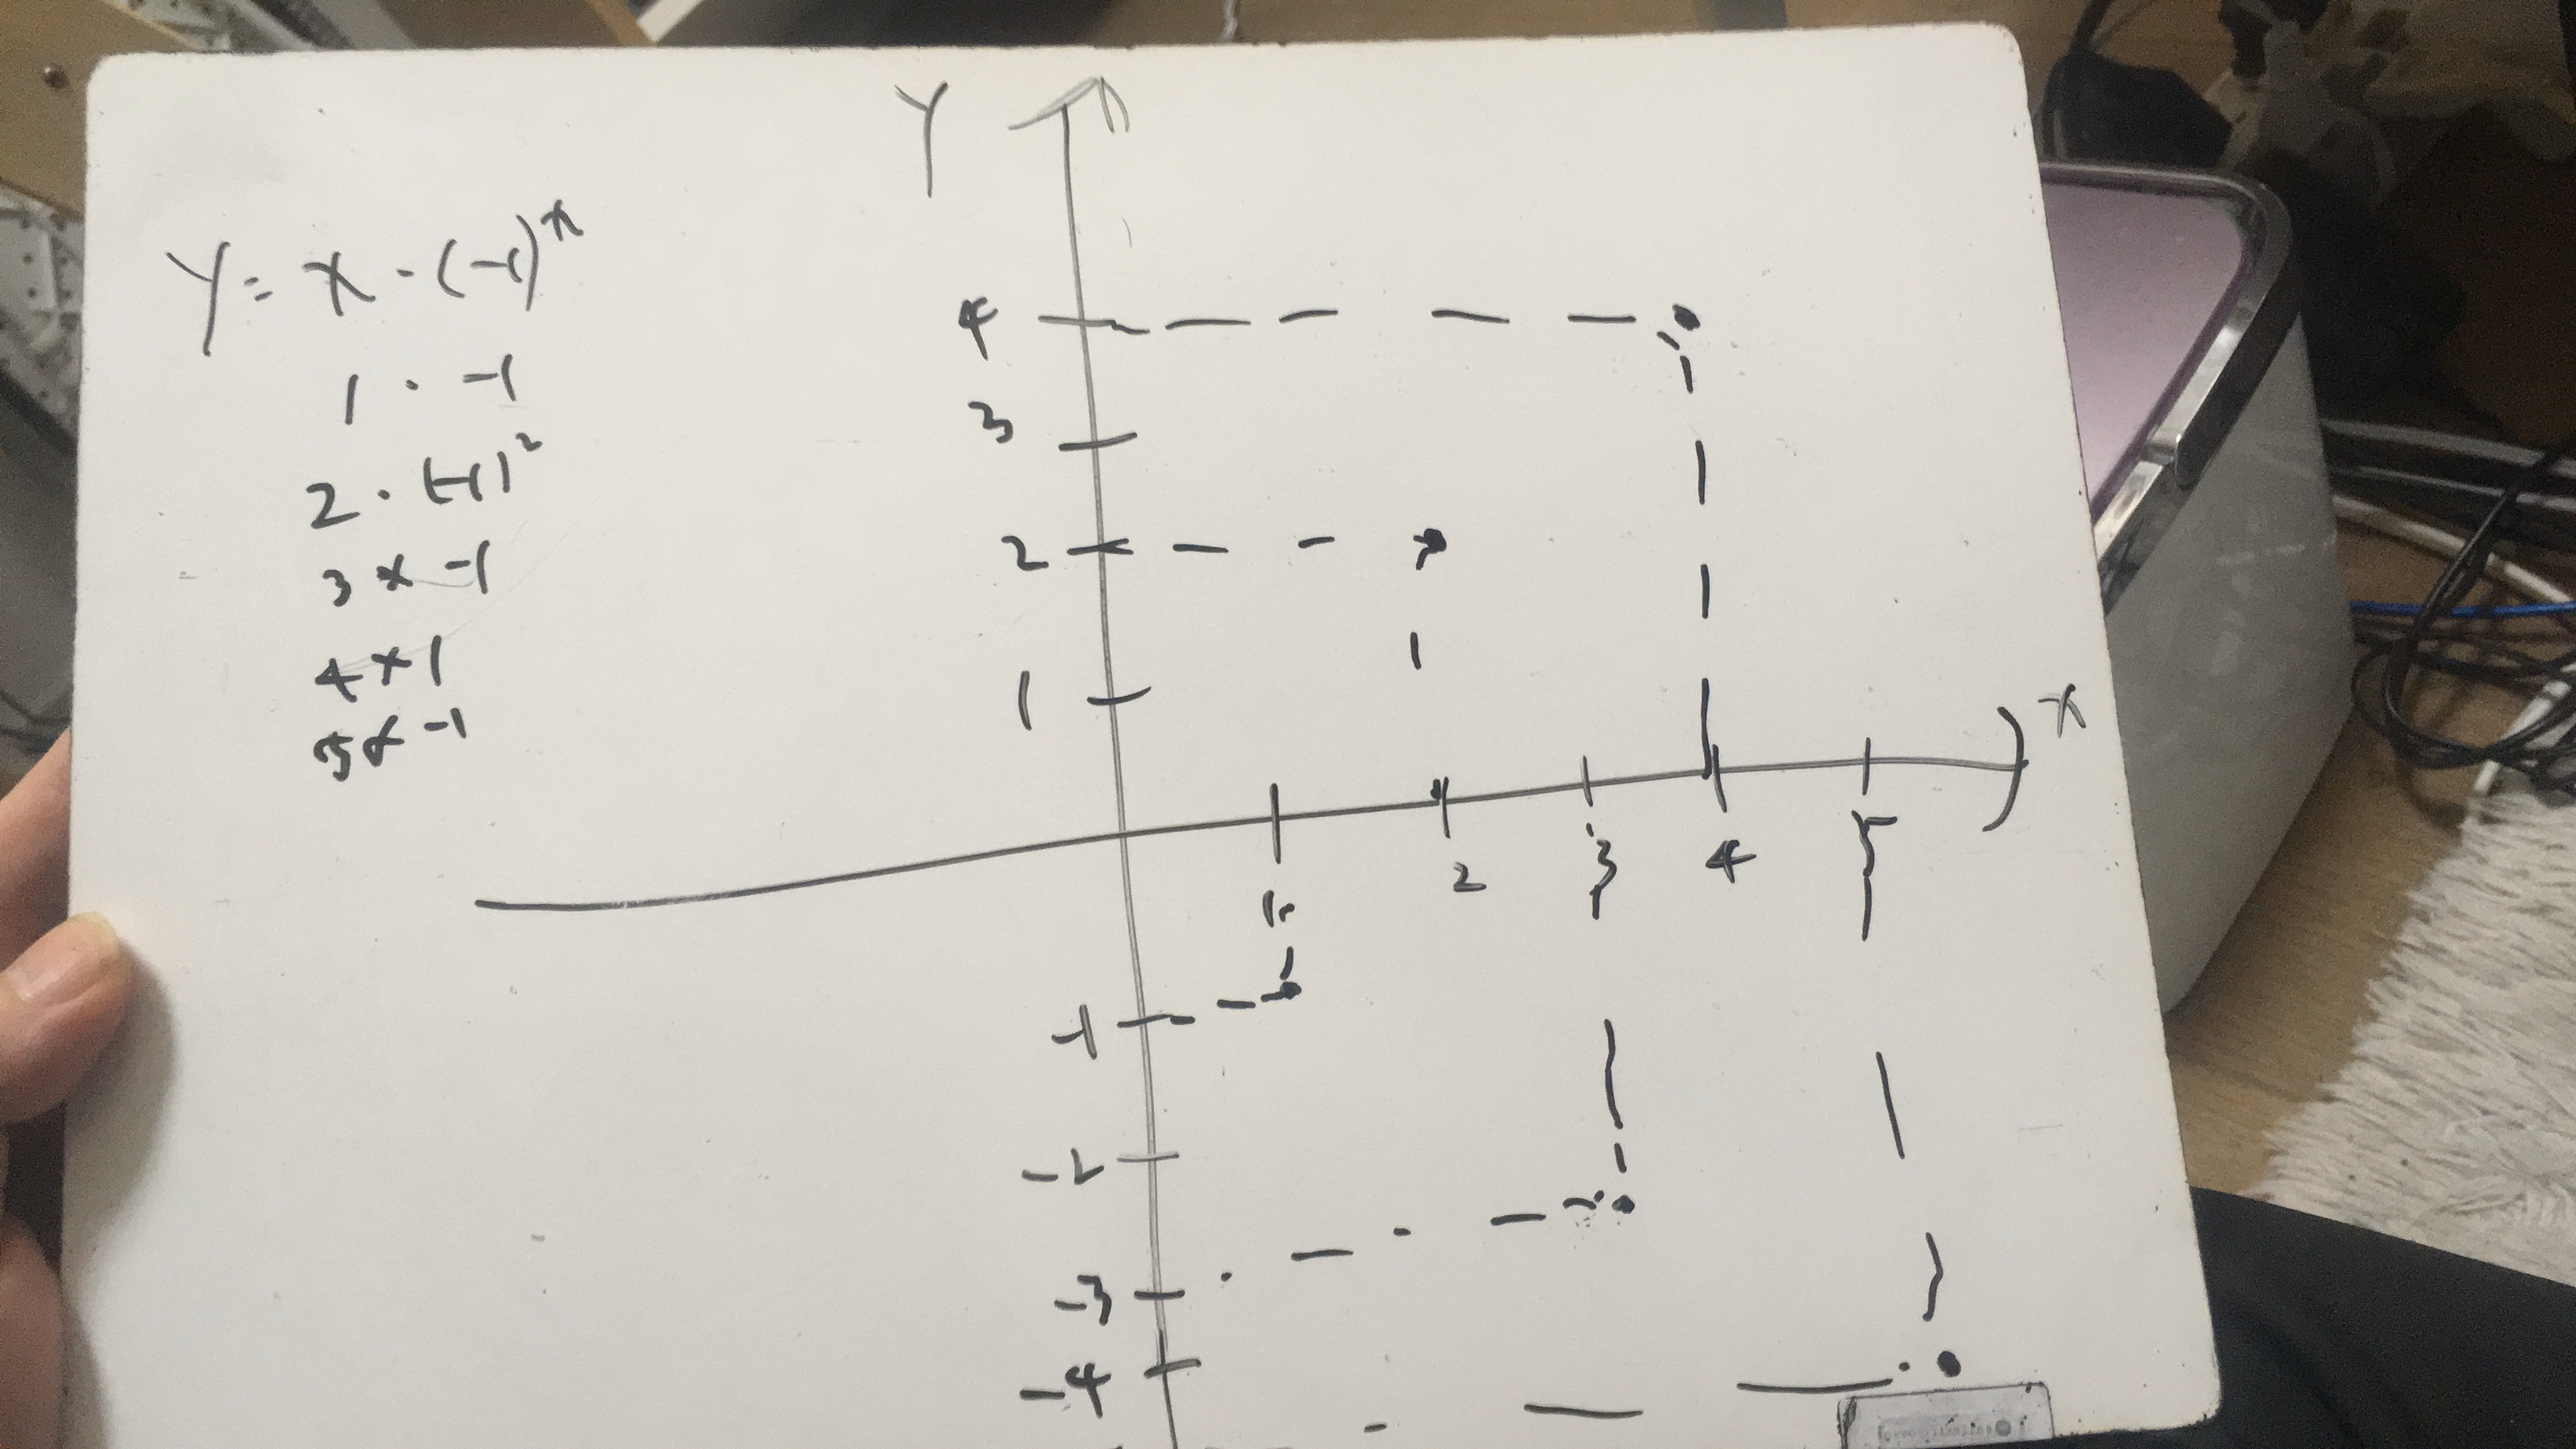 Y
Y = x · (-1)^x
1 · -1
2 · (-1)²
3 × -1
4 × 1
5 × -1
4
3
2
1
x
1 2 3 4 5
-1
-2
-3
-4